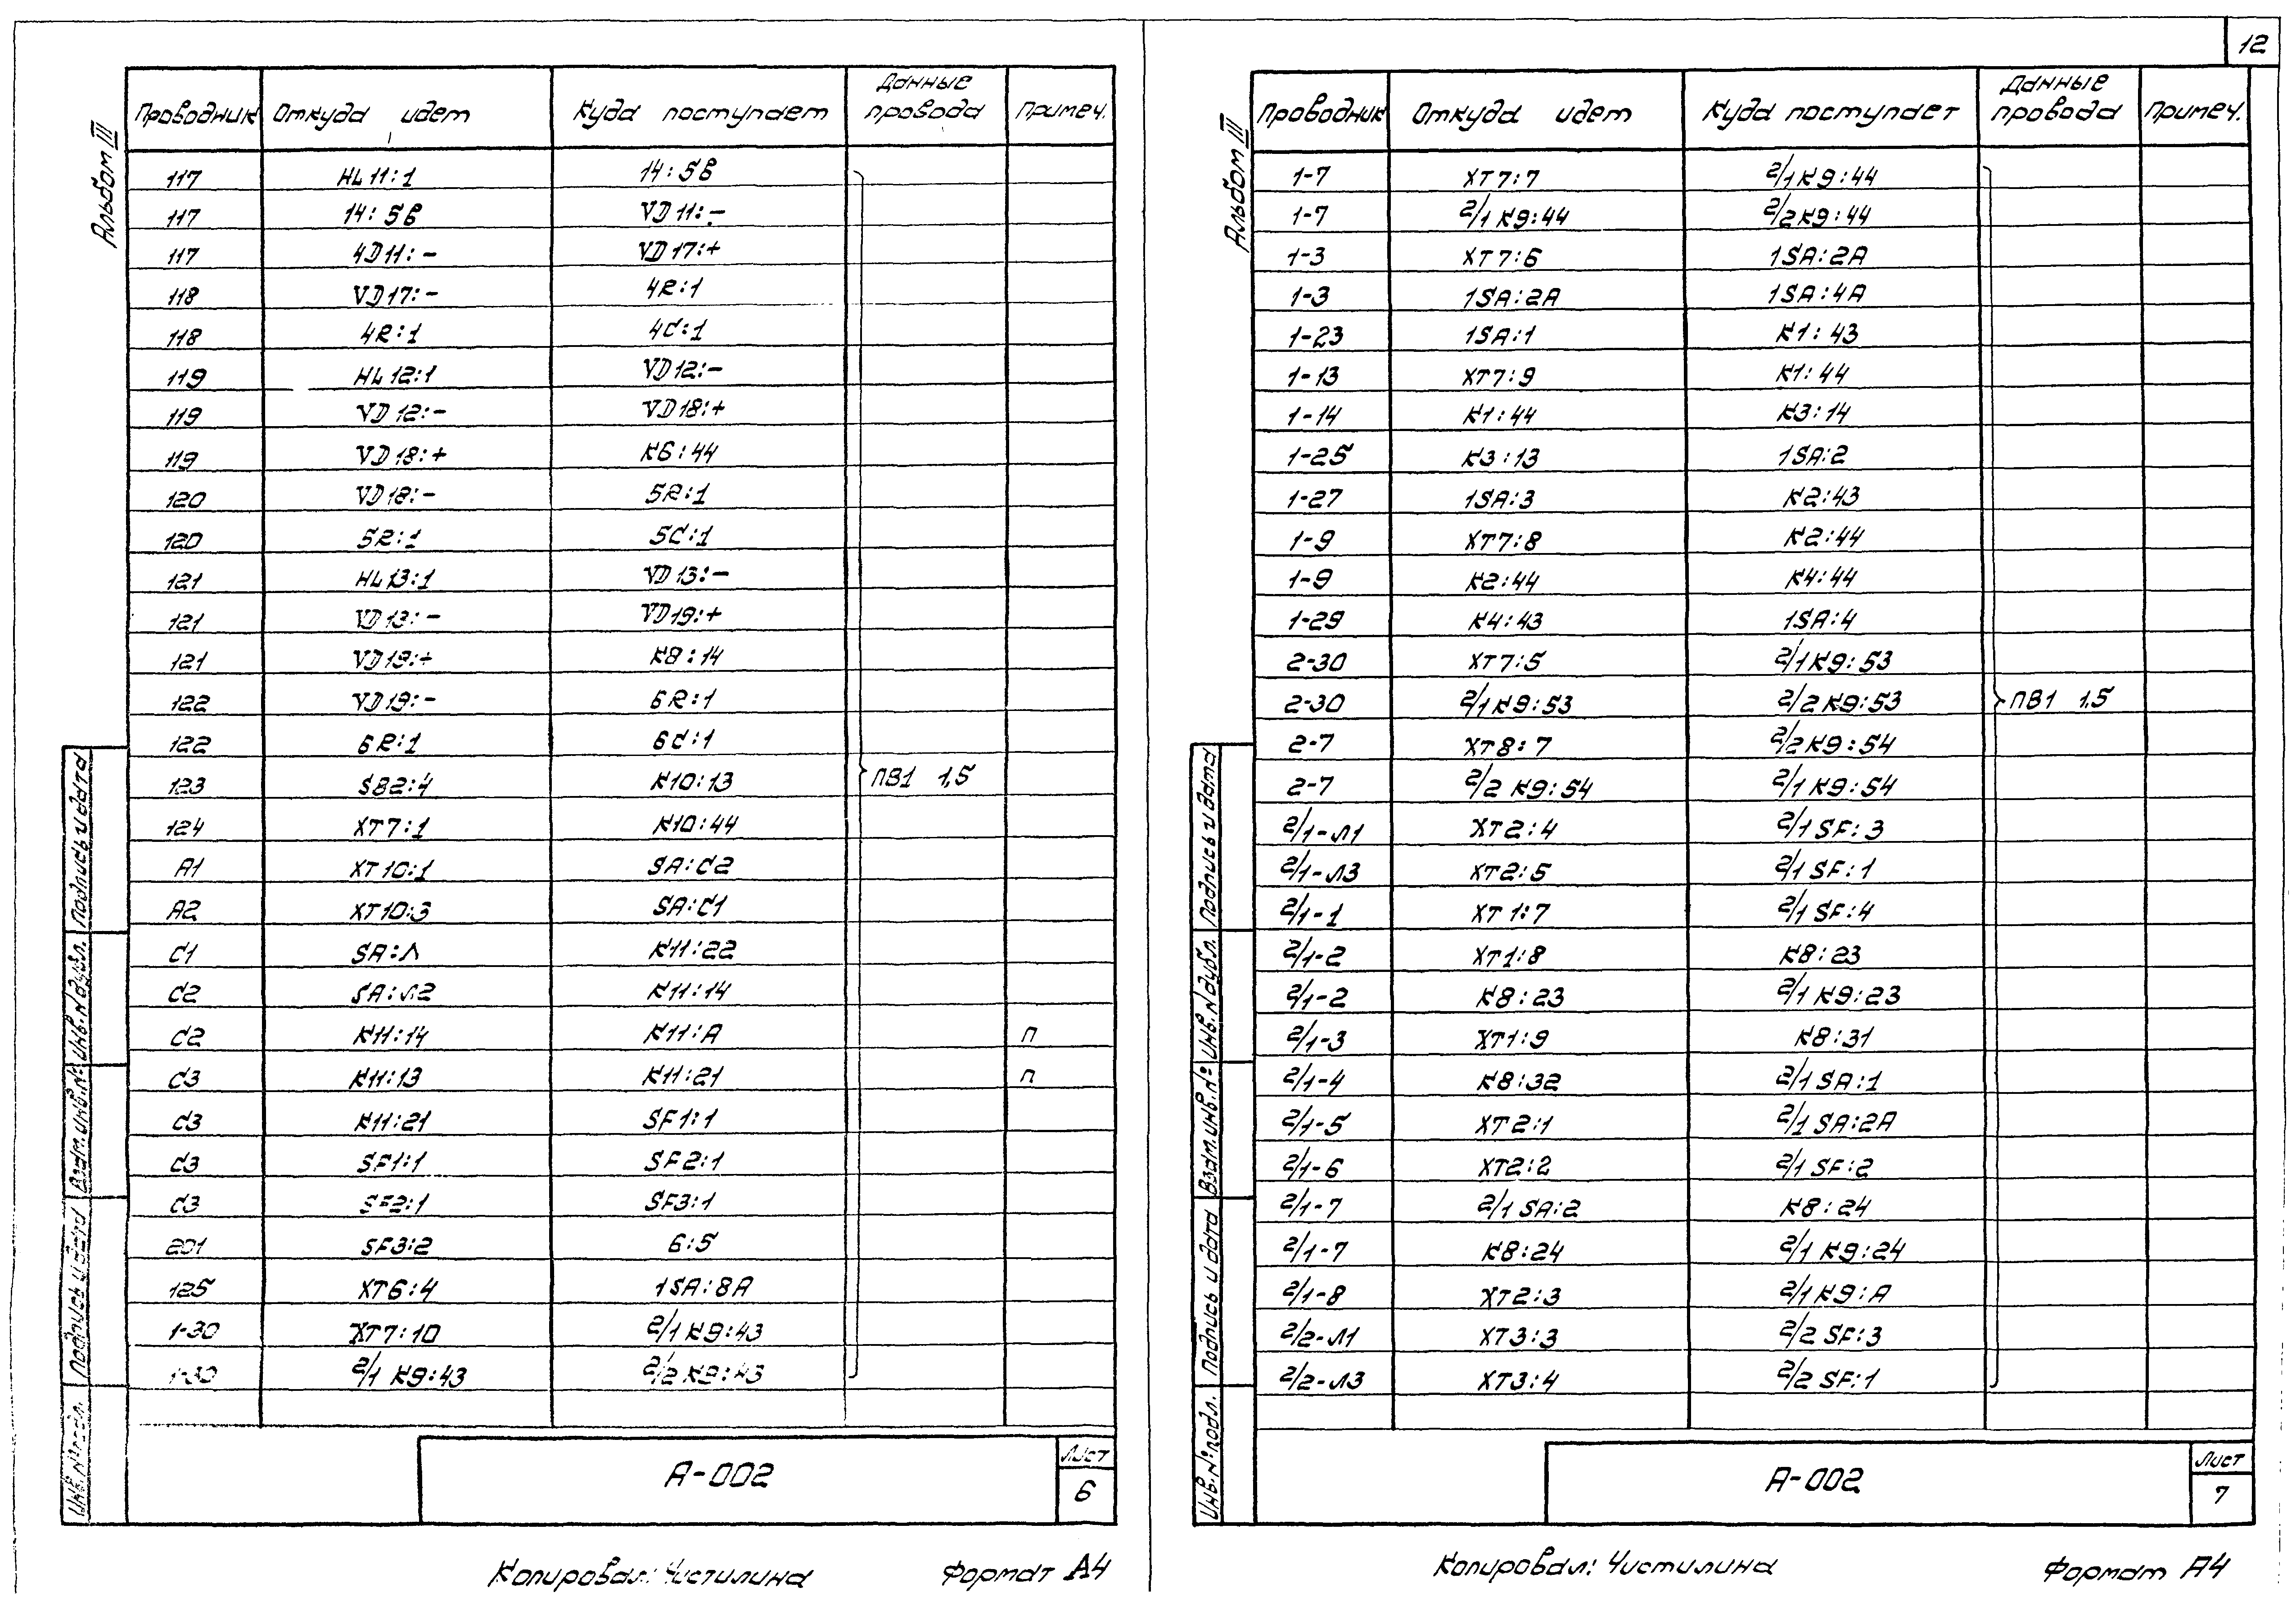 12
Альбом III
Проводник Откуда идет Куда поступает Данные провода Примеч.
117 HL11:1 14:5В
117 14:5В VD11:-
117 4D11:- VD17:+
118 VD17:- 4R:1
118 4R:1 4C:1
119 HL12:1 VD12:-
119 VD12:- VD18:+
119 VD18:+ К6:44
120 VD18:- 5R:1
120 5R:1 5C:1
121 HL13:1 VD13:-
121 VD13:- VD19:+
121 VD19:+ К8:14
122 VD19:- 6R:1
122 6R:1 6C:1
123 SB2:4 К10:13 ПВ1 1,5
124 XT7:1 К10:44
А1 XT10:1 SA:С2
А2 XT10:3 SA:С1
С1 SA:Л К11:22
С2 SA:Л2 К11:14
С2 К11:14 К11:А П
С3 К11:13 К11:21 П
С3 К11:21 SF1:1
С3 SF1:1 SF2:1
С3 SF2:1 SF3:1
201 SF3:2 6:5
125 XT6:4 1SA:8А
1-30 XT7:10 2/1 К9:43
1-30 2/1 К9:43 2/2 К9:43
А-002
Лист
6
Инв.№подл. Подпись и дата Взам.инв.№ Инв.№дубл. Подпись и дата
Копировал: Чистилина Формат А4
Альбом III
Проводник Откуда идет Куда поступает Данные провода Примеч.
1-7 XT7:7 2/1 К9:44
1-7 2/1 К9:44 2/2 К9:44
1-3 XT7:6 1SA:2А
1-3 1SA:2А 1SA:4А
1-23 1SA:1 К1:43
1-13 XT7:9 К1:44
1-14 К1:44 К3:14
1-25 К3:13 1SA:2
1-27 1SA:3 К2:43
1-9 XT7:8 К2:44
1-9 К2:44 К4:44
1-29 К4:43 1SA:4
2-30 XT7:5 2/1 К9:53
2-30 2/1 К9:53 2/2 К9:53 ПВ1 1,5
2-7 XT8:7 2/2 К9:54
2-7 2/2 К9:54 2/1 К9:54
2/1-Л1 XT2:4 2/1 SF:3
2/1-Л3 XT2:5 2/1 SF:1
2/1-1 XT1:7 2/1 SF:4
2/1-2 XT1:8 К8:23
2/1-2 К8:23 2/1 К9:23
2/1-3 XT1:9 К8:31
2/1-4 К8:32 2/1 SA:1
2/1-5 XT2:1 2/1 SA:2А
2/1-6 XT2:2 2/1 SF:2
2/1-7 2/1 SA:2 К8:24
2/1-7 К8:24 2/1 К9:24
2/1-8 XT2:3 2/1 К9:А
2/2-Л1 XT3:3 2/2 SF:3
2/2-Л3 XT3:4 2/2 SF:1
А-002
Лист
7
Инв.№подл. Подпись и дата Взам.инв.№ Инв.№дубл. Подпись и дата
Копировал: Чистилина Формат А4